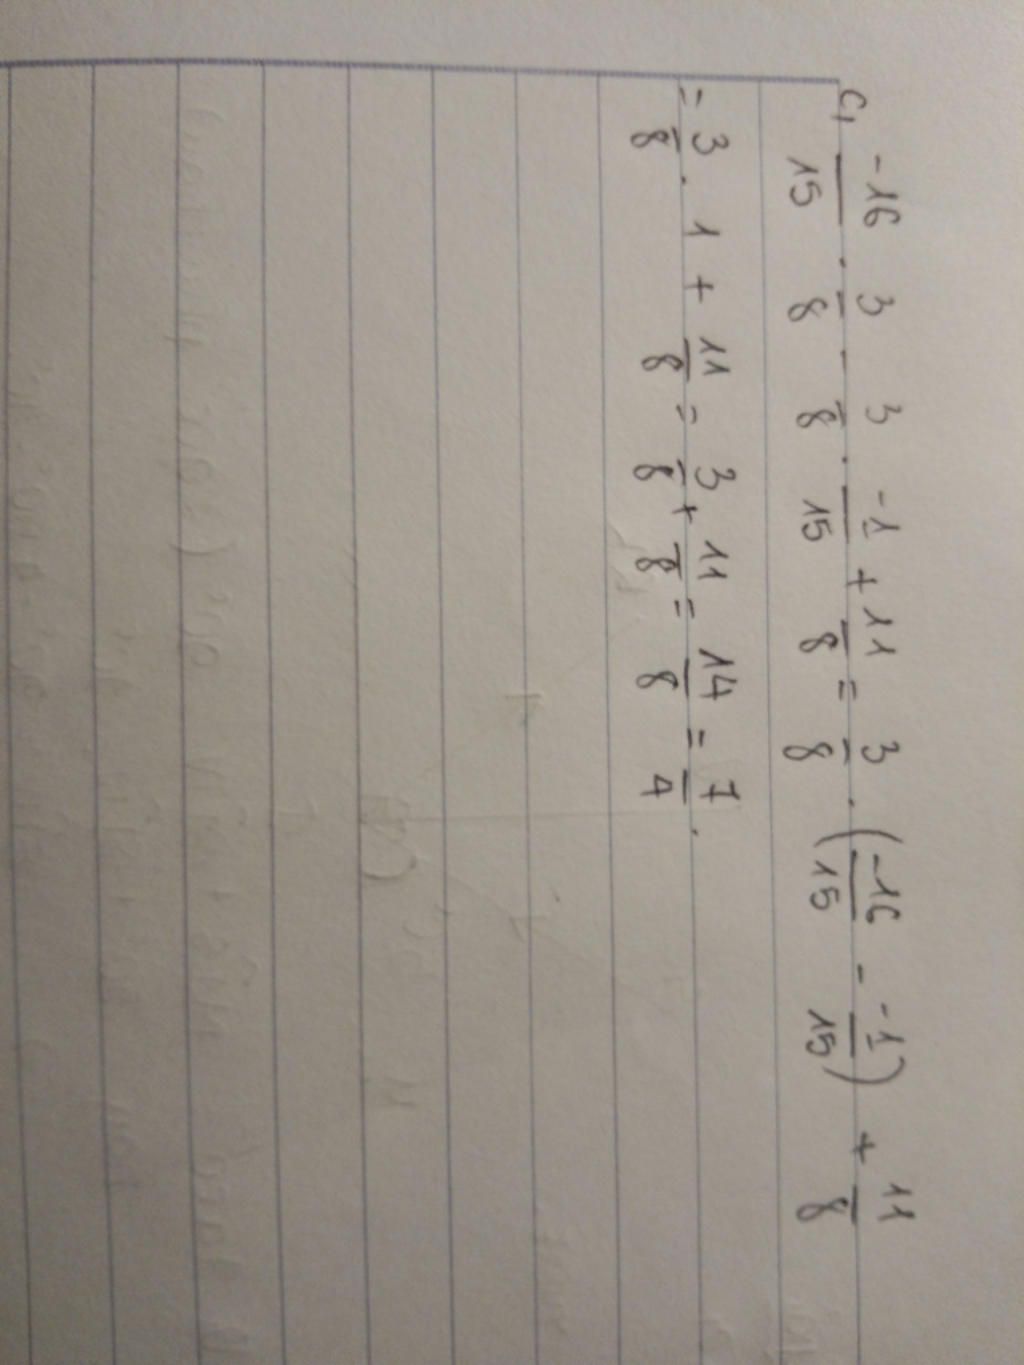 c, -16/15 . 3/8 - 3/8 . -1/15 + 11/8 = 3/8 . (-16/15 - -1/15) + 11/8
= 3/8 . 1 + 11/8 = 3/8 + 11/8 = 14/8 = 7/4 .